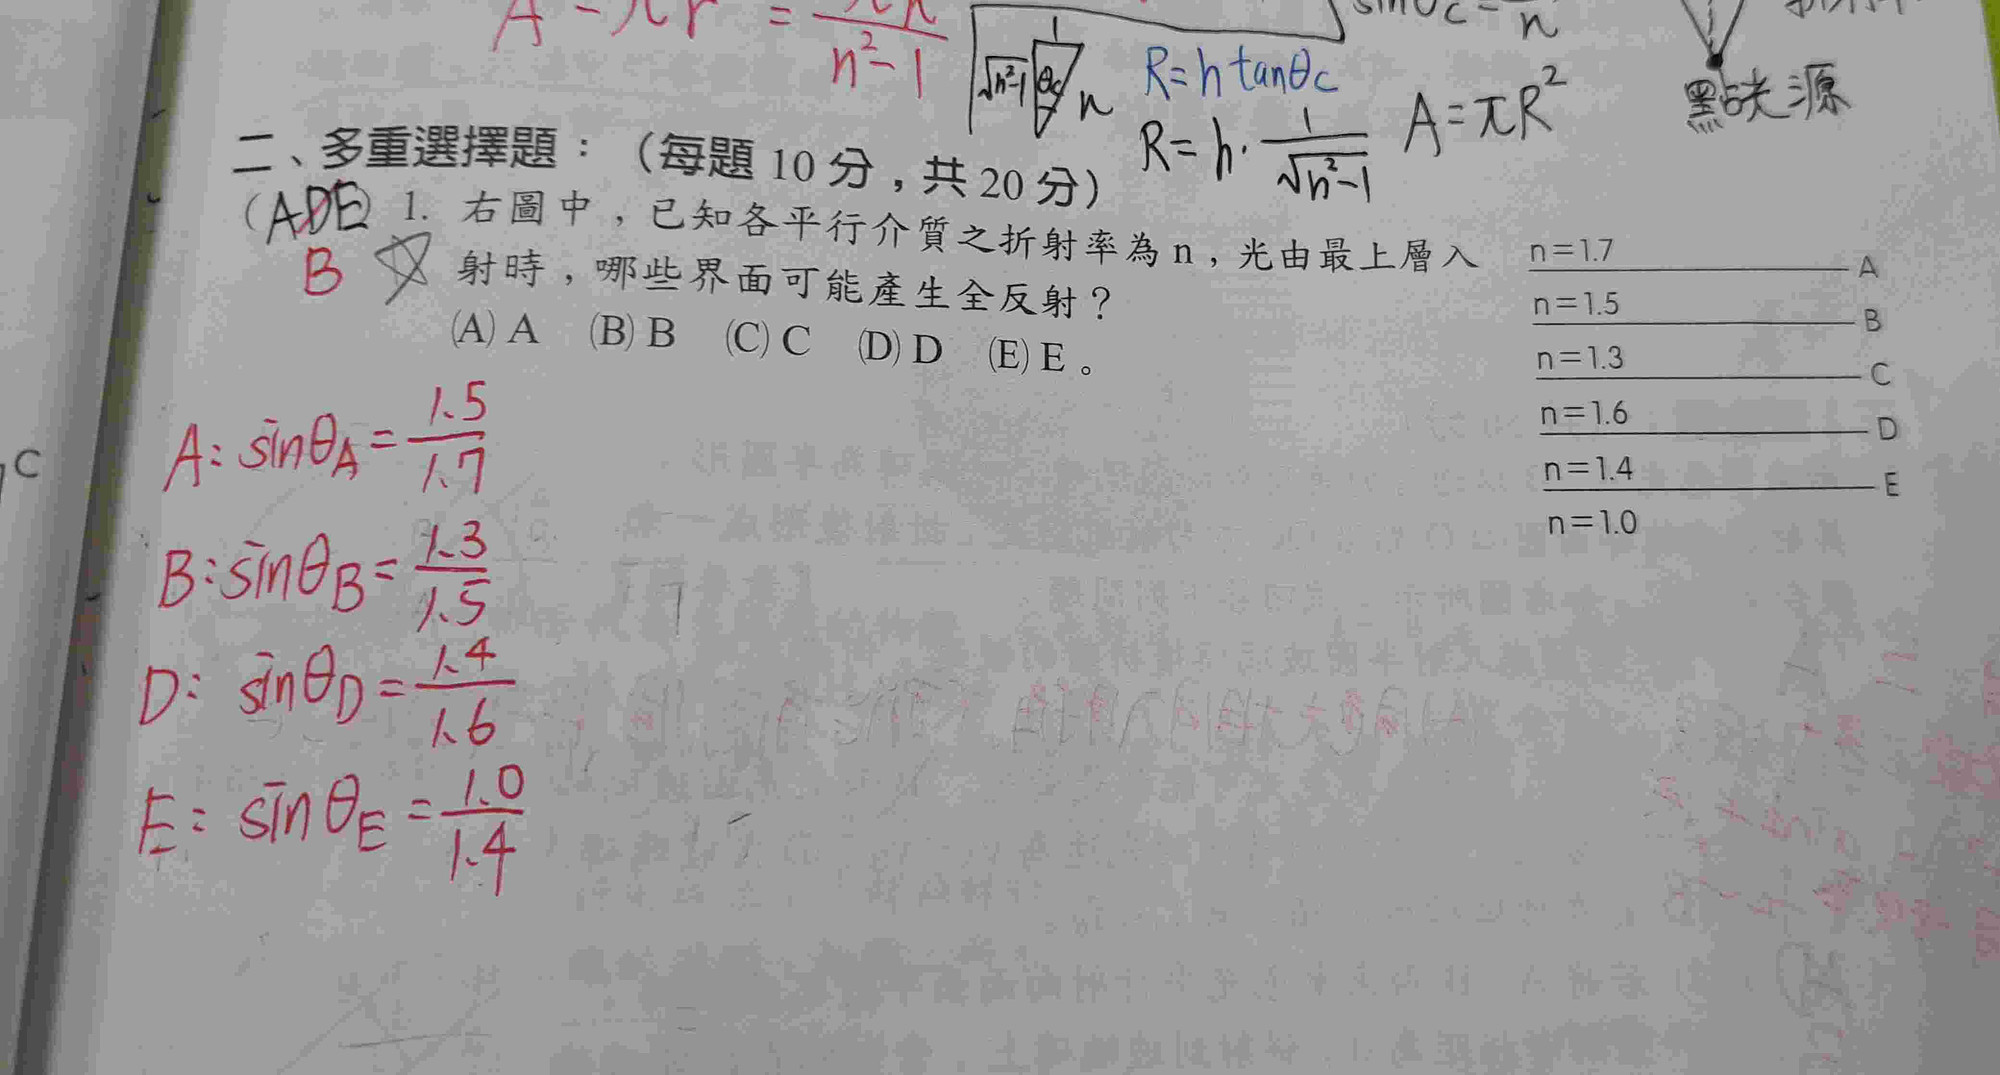 n²-1
√n²-1 1 θc n
R=h tanθc
R=h·1/√n²-1
A=πR²
點光源
二、多重選擇題：（每題 10 分，共 20 分）
(ADE) 1. 右圖中，已知各平行介質之折射率為 n，光由最上層入
B 射時，哪些界面可能產生全反射？
(A) A (B) B (C) C (D) D (E) E。
n=1.7
A
n=1.5
B
n=1.3
C
n=1.6
D
n=1.4
E
n=1.0
A: sinθA=1.5/1.7
B:sinθB=1.3/1.5
D: sinθD=1.4/1.6
E: sinθE=1.0/1.4
C